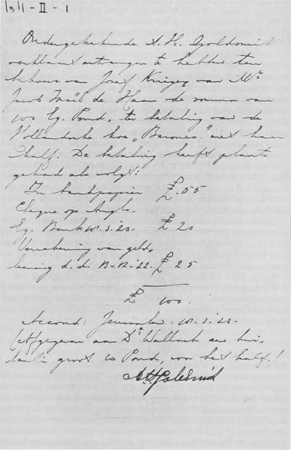 1911-II-1
Ondergeteekende A. H. Goldsmid
verklaart ontvangen te hebben ten
behoeve van Josef Krieger van Mr
Jacob Israël de Haan de somma van
100 Eg. Pond, te betaling van de
"Baronin" met haar
half. De betaling heeft plaats
gehad als volgt:
In bankpapier £ 55
Cheque op Anglo.
Eg. Bank £ 20
Verrekening van geld-
leening d.d. 13-12-22. £ 25
£ 100.
Accoord: Jeruzalem
Afgegeven aan Dr Wallach
groot 10 Pond, voor het half!
AHGoldsmid